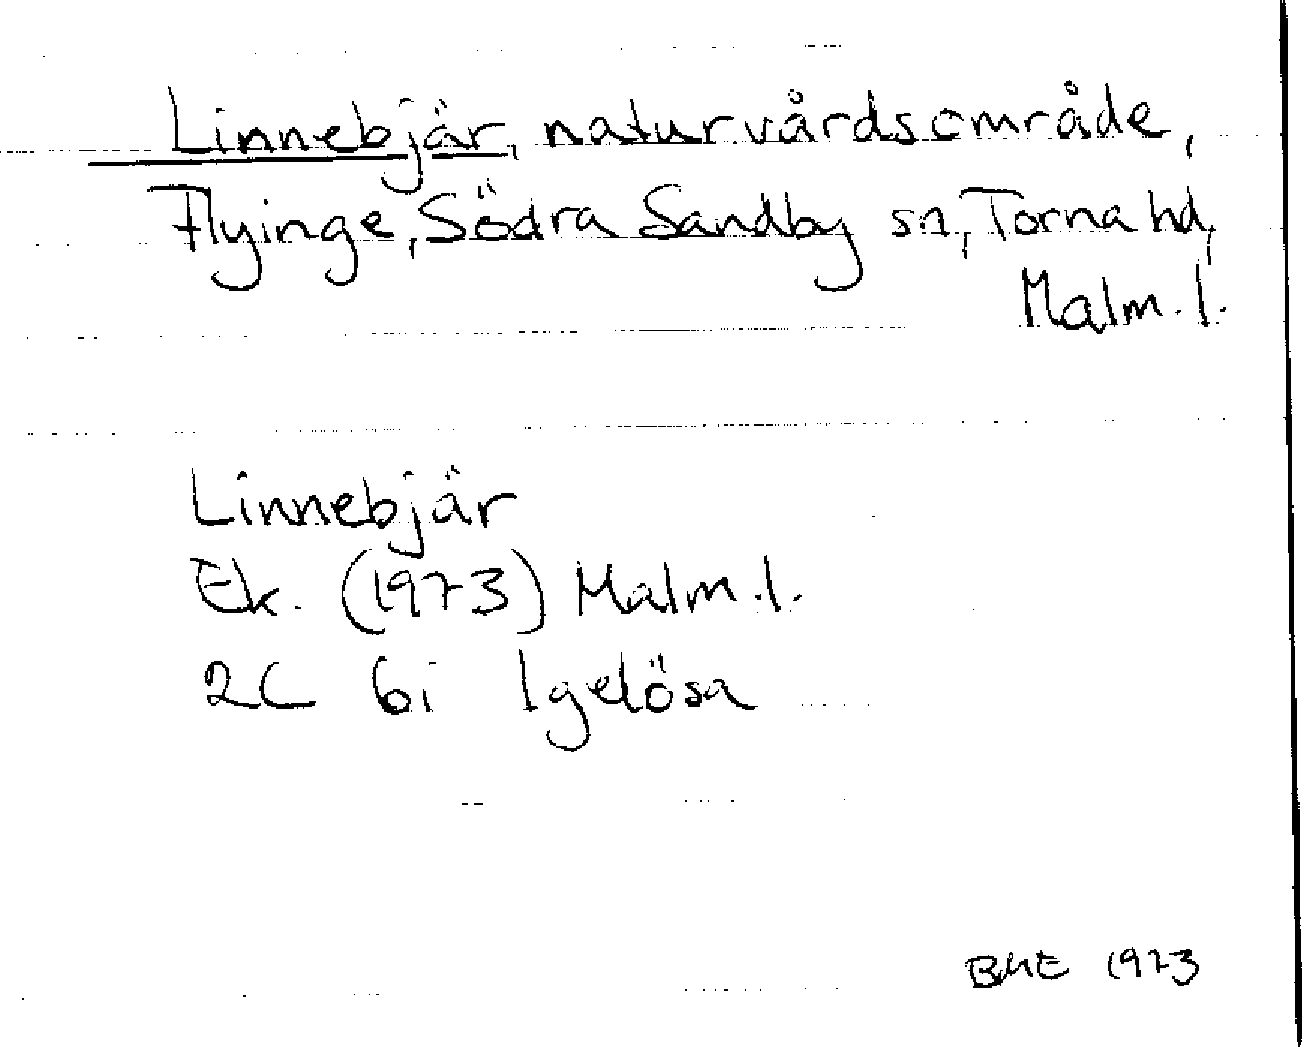 Linnebjär, naturvårdsområde,
Flyinge, Södra Sandby sn, Torna hd,
Malm. l.
Linnebjär
Ek. (1973) Malm. l.
2C 6i Igelösa
BME 1973